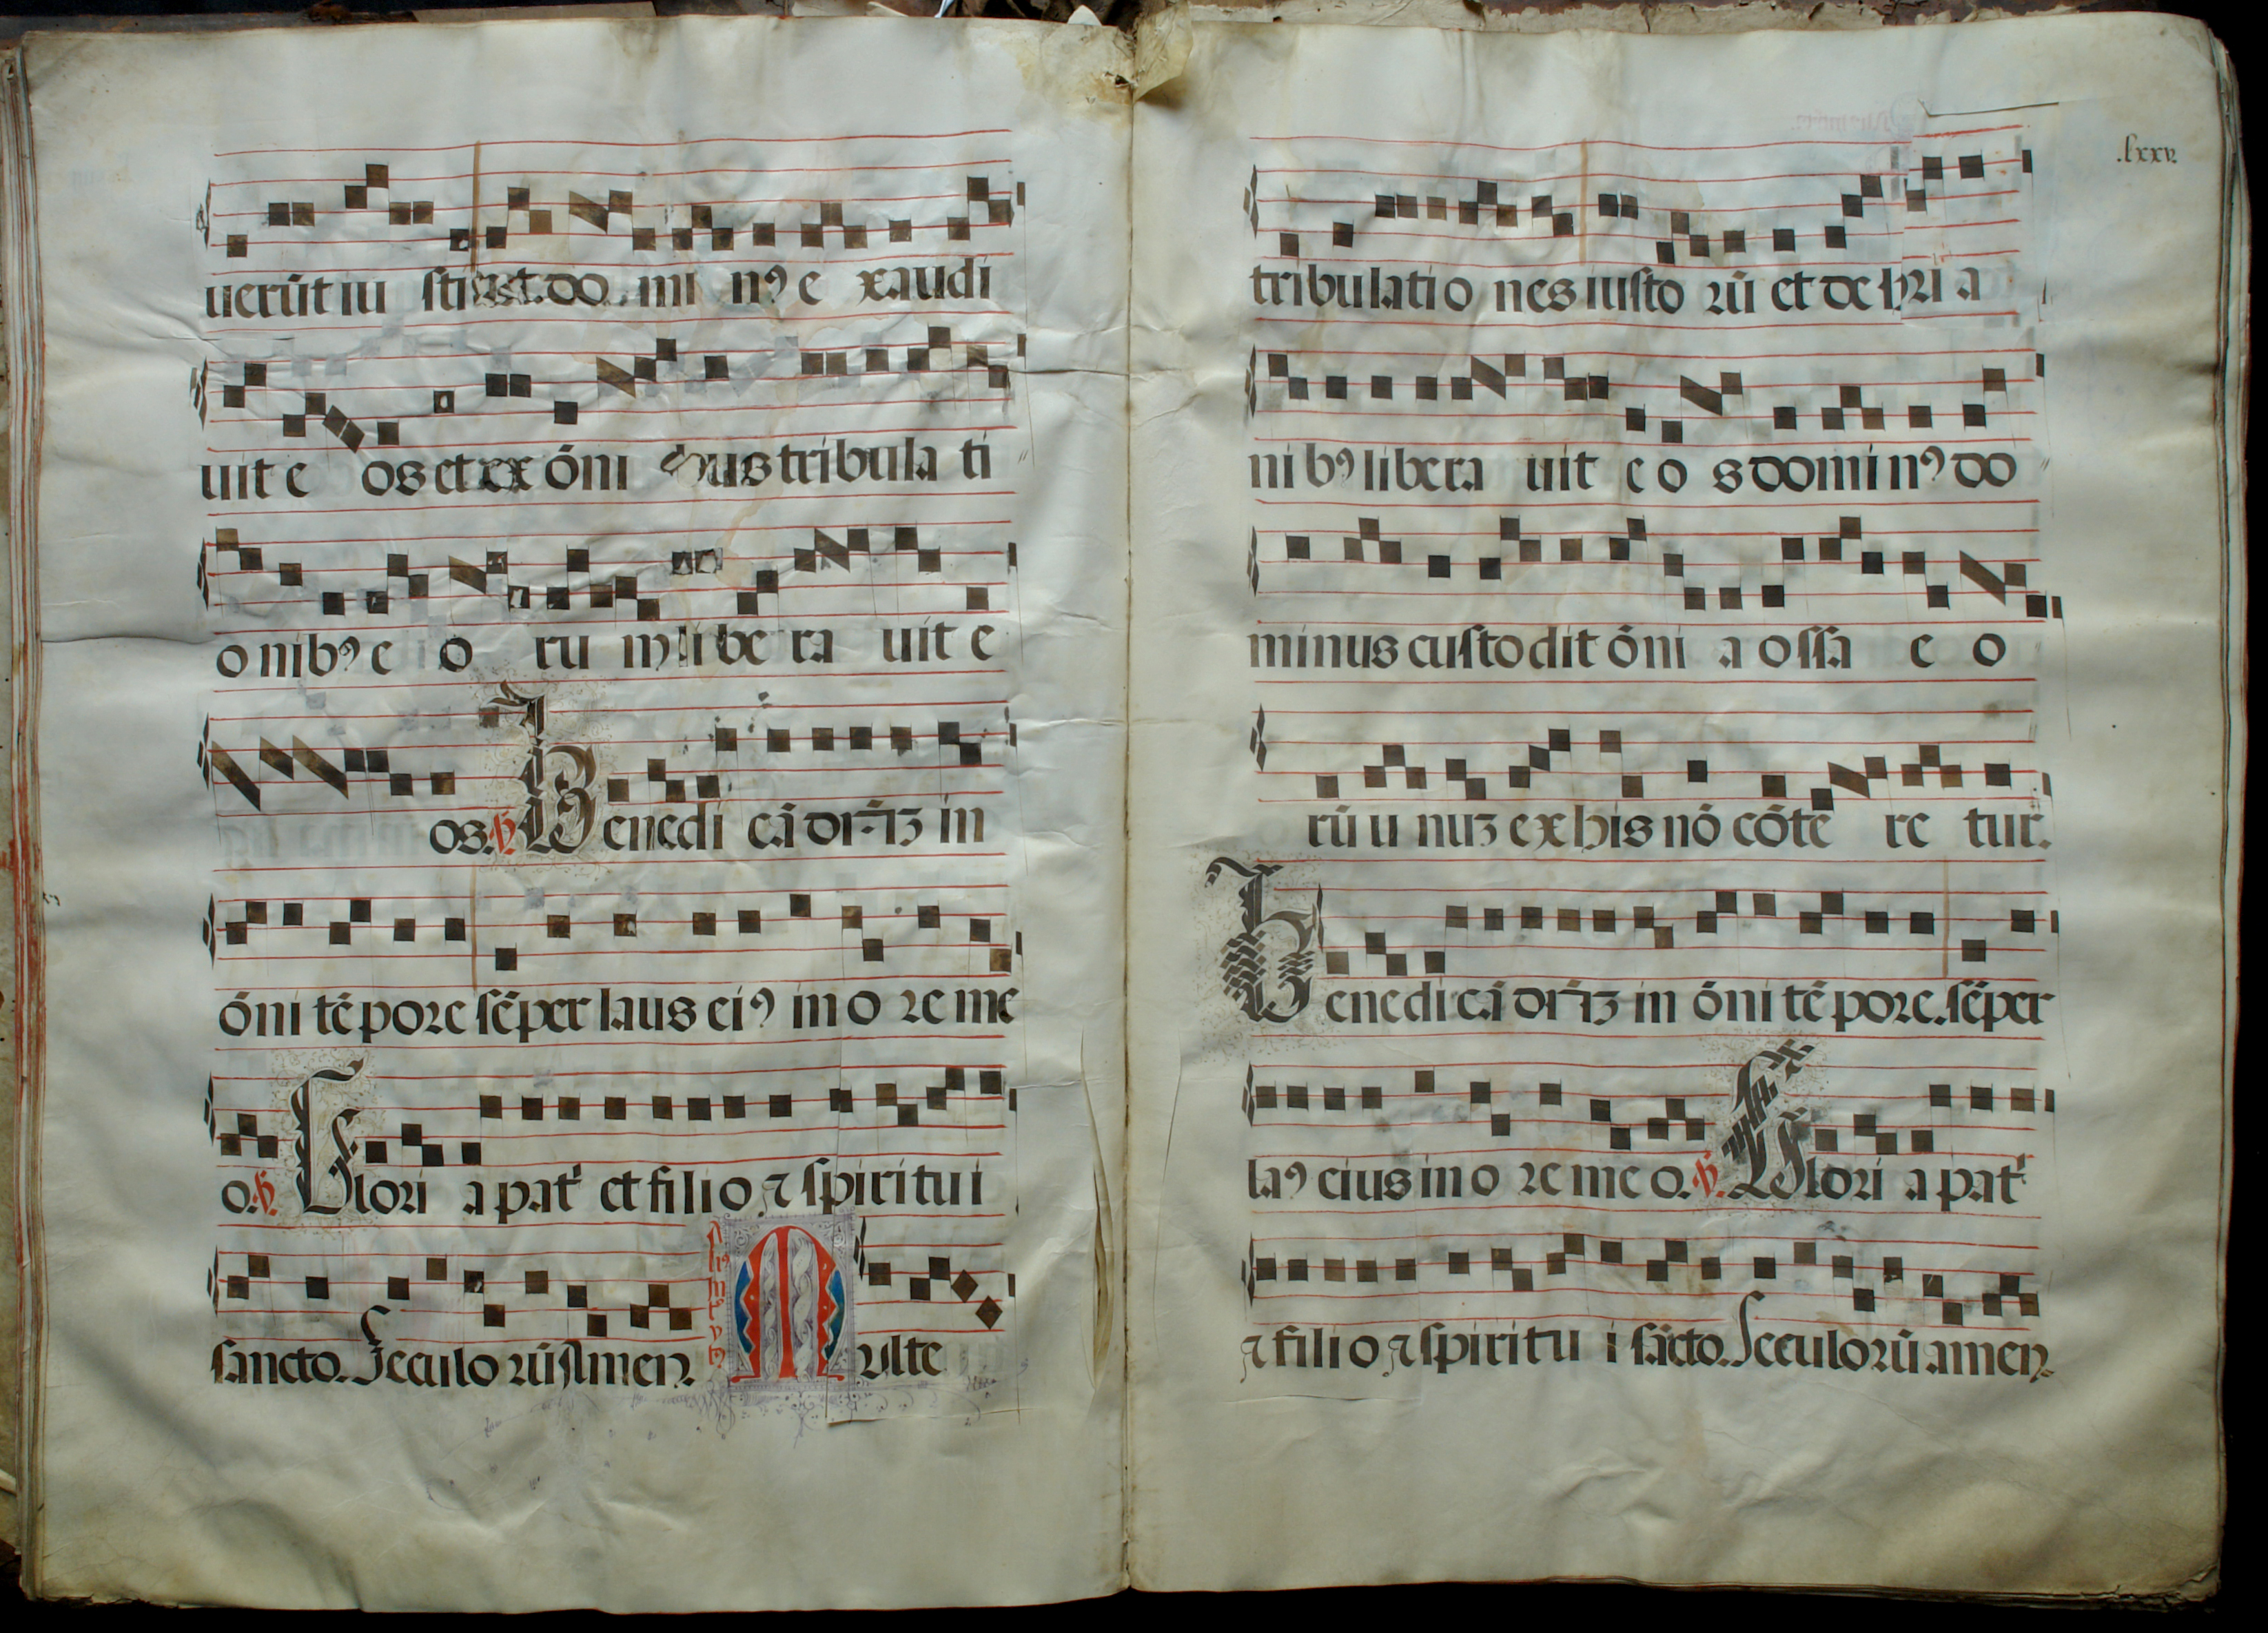 uerūt iu sti et do mi nꝰ e xaudi
uit e os et ex ōni bus tribula ti
o nibꝰ e o ru m libe ra uit e
os. ℣. Benedi cā dn̄ꝫ in
ōni tēpore sēper laus eiꝰ in o re me
o. ℣. Glori a patͥ et filio ⁊ spiritui
sancto. Seculo rū Amen. Multe
.lxxv.
tribulatio nes iusto rū et de hꝫi a
ni bꝰ libera uit e o s domi nꝰ do
minus custodit ōni a ossa e o
rū u nuꝫ ex his nō cōte re tur.
Benedi cā dn̄ꝫ in ōni tēpore. sēper
laꝰ eius in o re me o. ℣. Glori a patͥ
⁊ filio ⁊ spiritu i sācto. Seculorū amen.